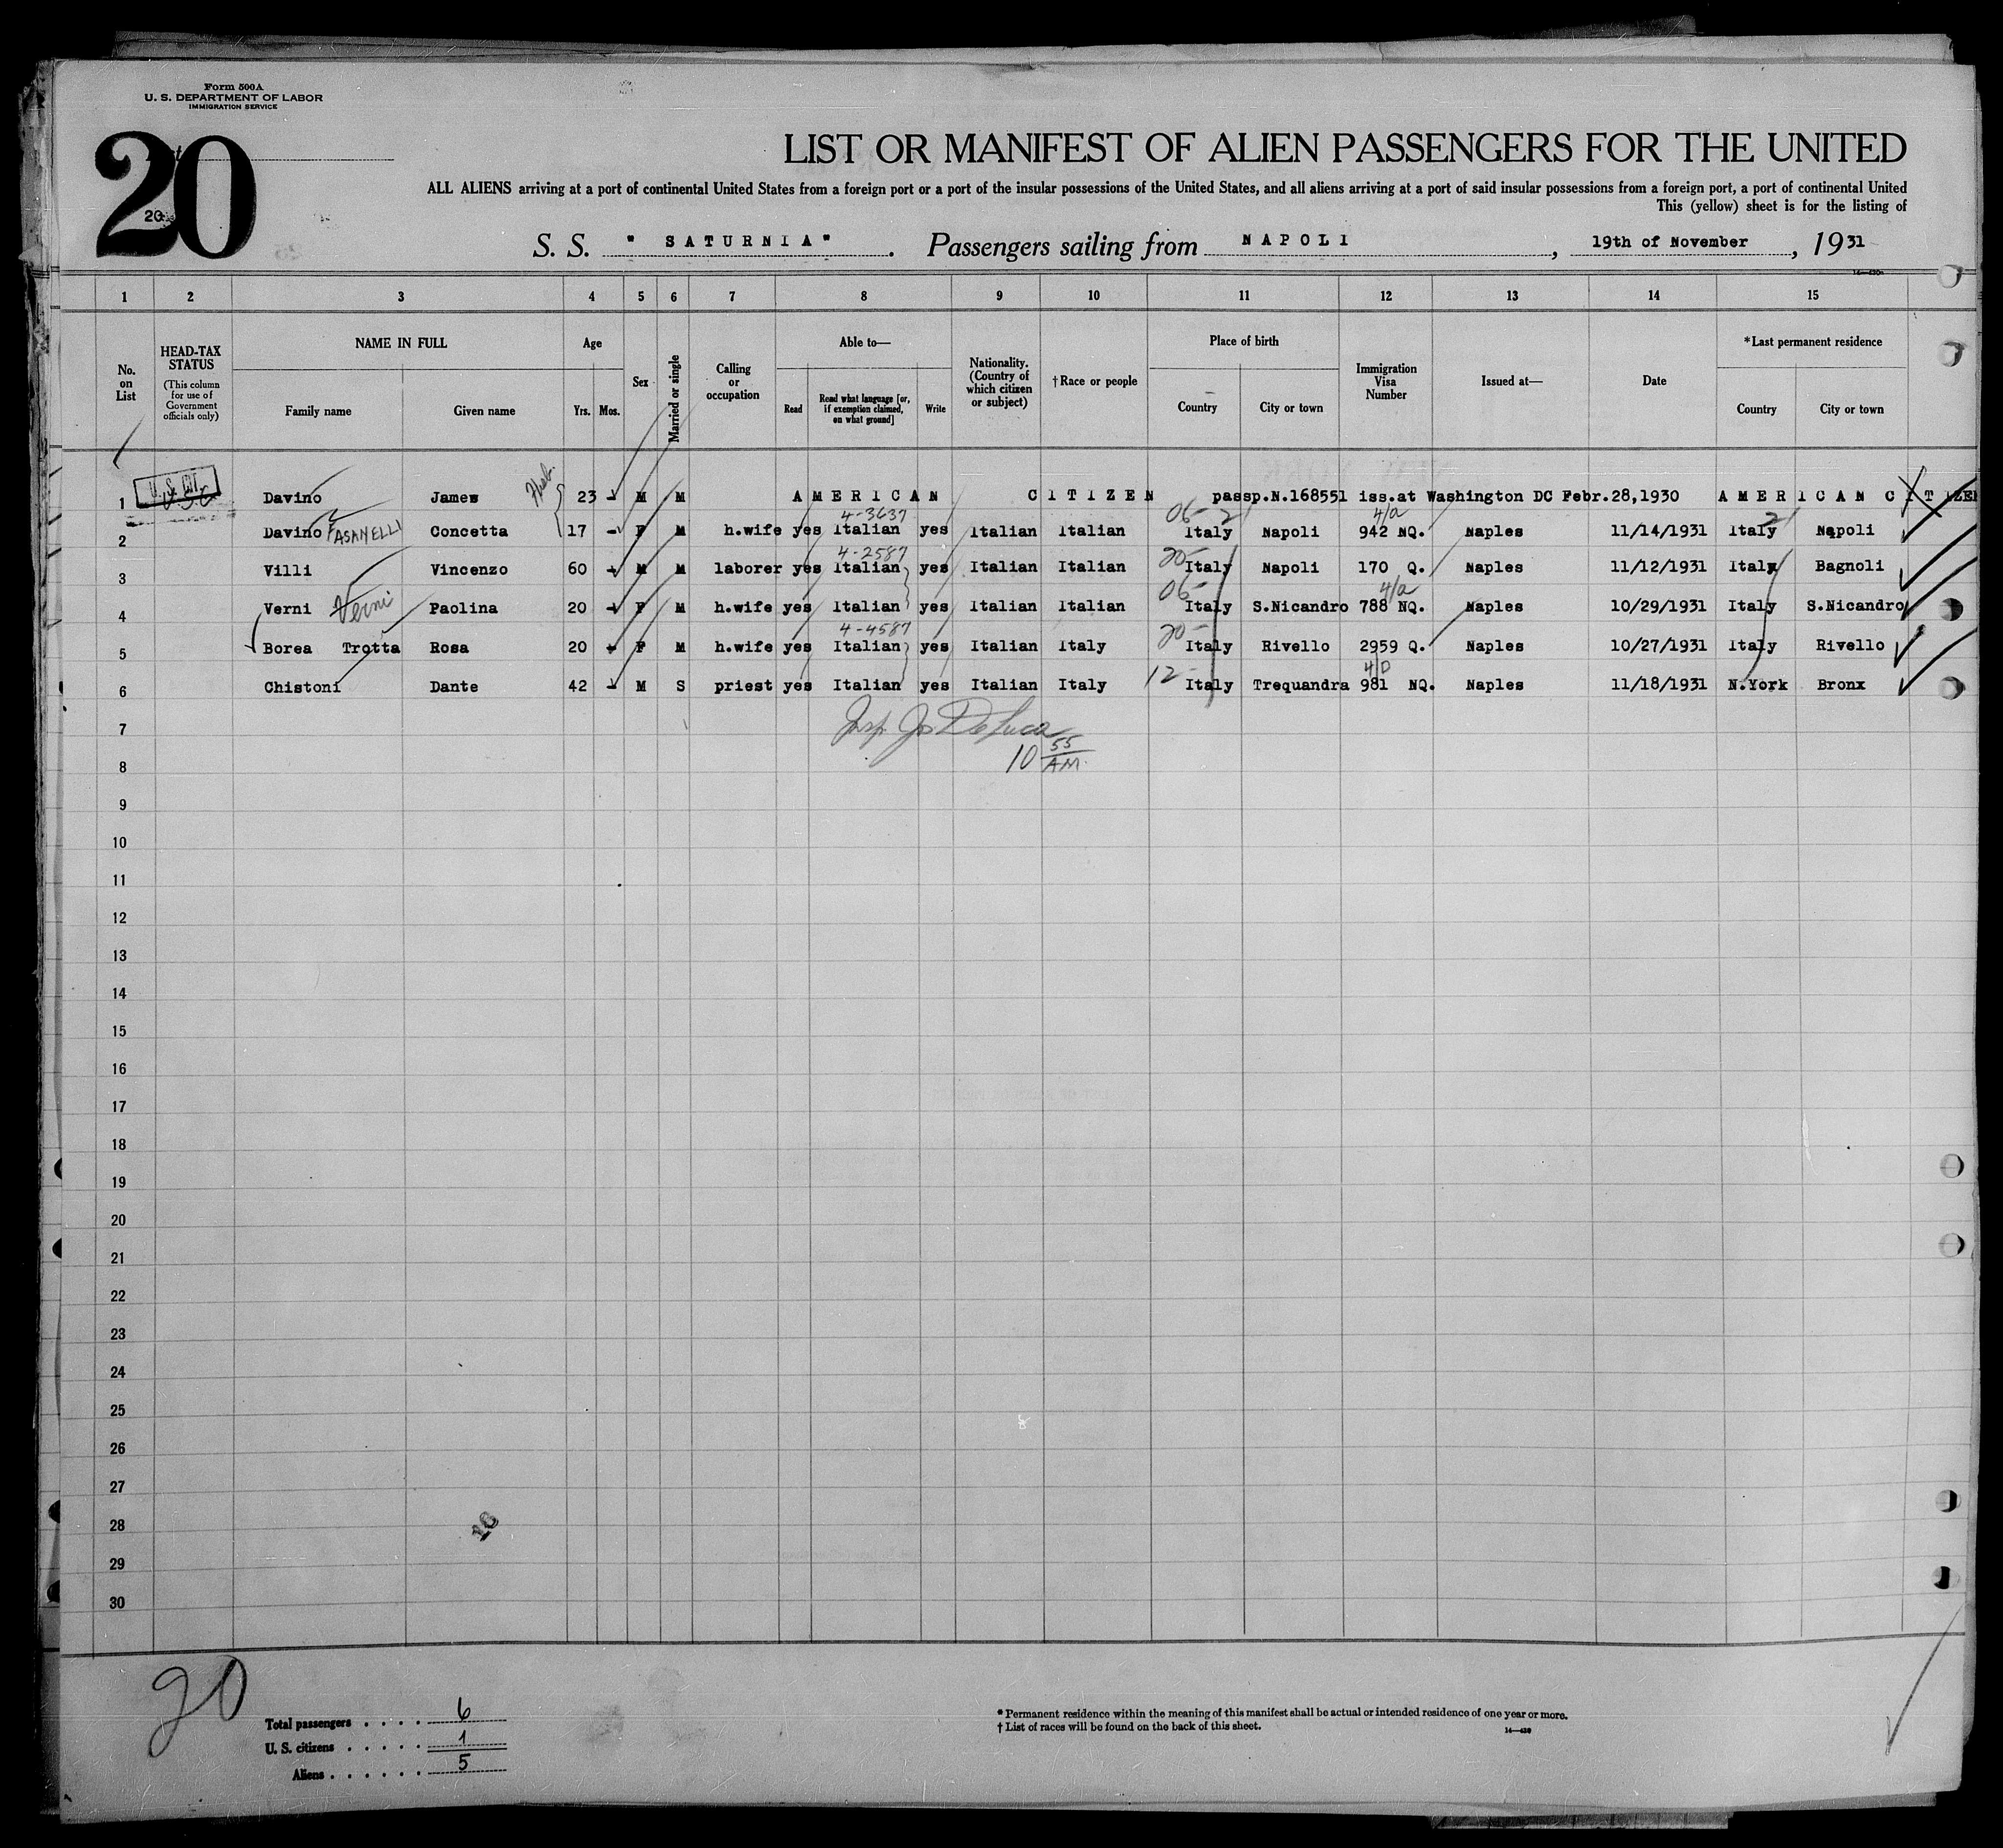 Form 500A
U. S. DEPARTMENT OF LABOR
IMMIGRATION SERVICE
20
20
LIST OR MANIFEST OF ALIEN PASSENGERS FOR THE UNITED
ALL ALIENS arriving at a port of continental United States from a foreign port or a port of the insular possessions of the United States, and all aliens arriving at a port of said insular possessions from a foreign port, a port of continental United
This (yellow) sheet is for the listing of
S. S. " SATURNIA" . Passengers sailing from NAPOLI , 19th of November , 1931
1 2 3 4 5 6 7 8 9 10 11 12 13 14 15
No. on List
HEAD-TAX STATUS
(This column for use of Government officials only)
NAME IN FULL
Family name Given name
Age
Yrs. Mos.
Sex
Married or single
Calling or occupation
Able to—
Read Read what language [or, if exemption claimed, on what ground] Write
Nationality. (Country of which citizen or subject)
†Race or people
Place of birth
Country City or town
Immigration Visa Number
Issued at—
Date
*Last permanent residence
Country City or town
1 U.S.C. Davino James Husb. 23 - M M AMERICAN CITIZEN passp.N.168551 iss.at Washington DC Febr.28,1930 AMERICAN CITIZEN
4-3637 06- 2 4/a 2
2 Davino FASANELLI Concetta 17 - F M h.wife yes Italian yes Italian Italian Italy Napoli 942 NQ. Naples 11/14/1931 Italy Napoli
4-2587 20-
3 Villi Vincenzo 60 - M M laborer yes Italian yes Italian Italian Italy Napoli 170 Q. Naples 11/12/1931 Italy Bagnoli
06- 4/a
4 Verni Verni Paolina 20 - F M h.wife yes Italian yes Italian Italian Italy S.Nicandro 788 NQ. Naples 10/29/1931 Italy S.Nicandro
4-4587 20-
5 Borea Trotta Rosa 20 - F M h.wife yes Italian yes Italian Italy Italy Rivello 2959 Q. Naples 10/27/1931 Italy Rivello
12- 4/D
6 Chistoni Dante 42 - M S priest yes Italian yes Italian Italy Italy Trequandra 981 NQ. Naples 11/18/1931 N.York Bronx
7 Insp. Jos DeLuca
8 10 55 AM.
9
10
11
12
13
14
15
16
17
18
19
20
21
22
23
24
25
26
27
28
29
30
20
Total passengers . . . . 6
U. S. citizens . . . . . 1
Aliens . . . . . . 5
* Permanent residence within the meaning of this manifest shall be actual or intended residence of one year or more.
† List of races will be found on the back of this sheet.
14—430